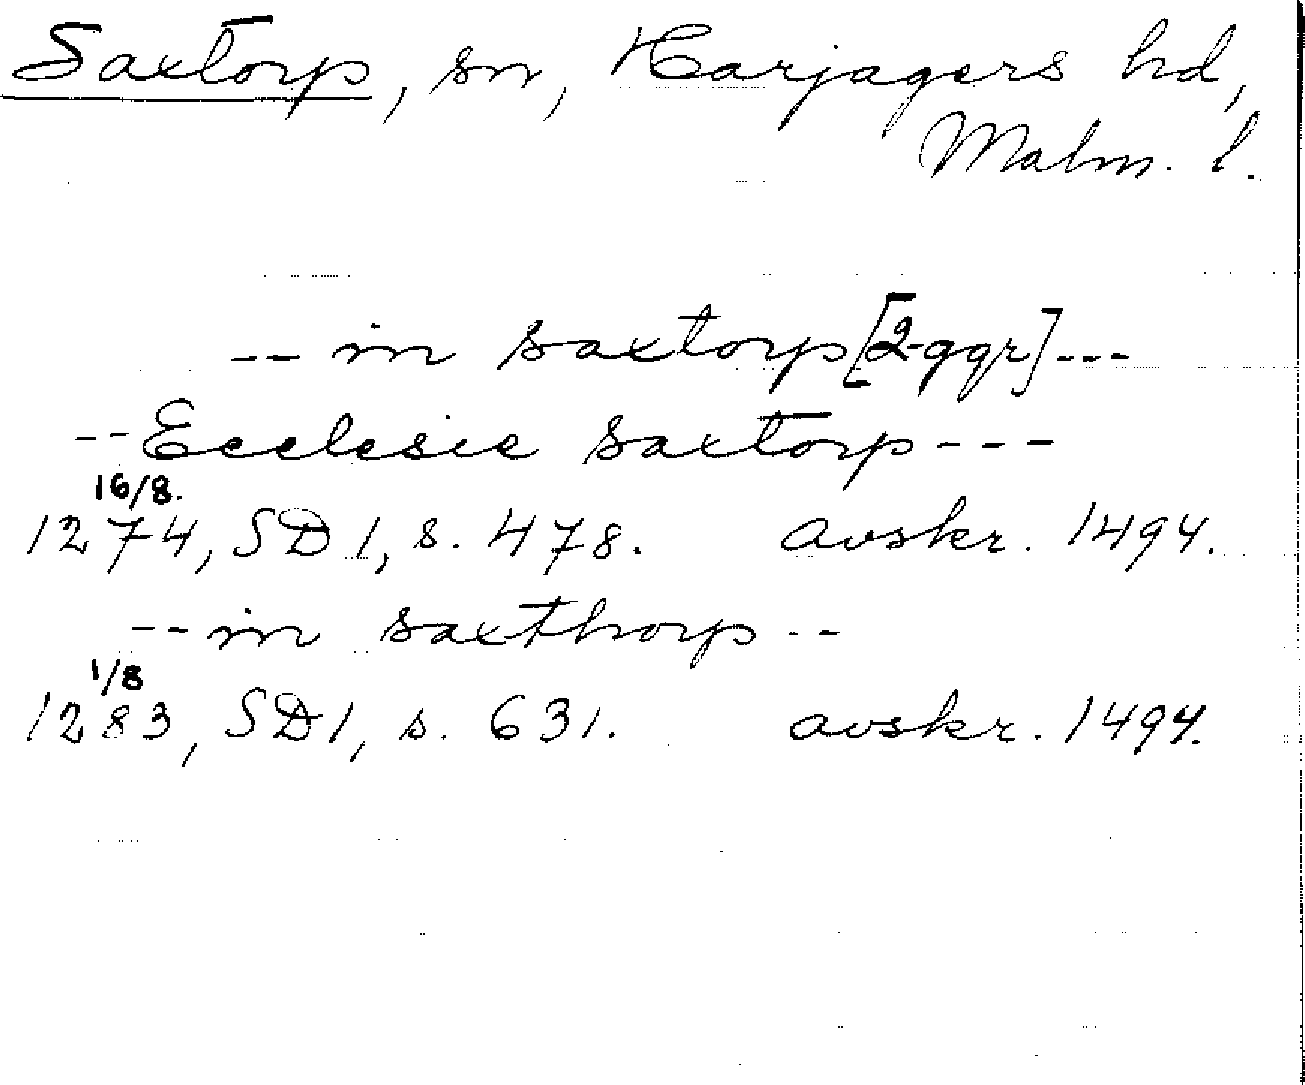 Saxtorp, sn, Harjagers hd,
Malm. l.
-- in saxtorp [2 ggr] ---
-- Ecclesie saxtorp ---
16/8.
1274, SD 1, s. 478. avskr. 1494.
-- in saxthorp --
1/8
1283, SD 1, s. 631. avskr. 1494.